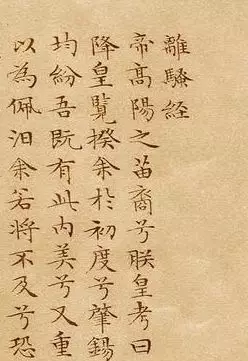 離騷経
帝高陽之苗裔兮朕皇考曰
降皇覽揆余於初度兮肇錫
均紛吾既有此內美兮又重
以為佩汨余若將不及兮恐